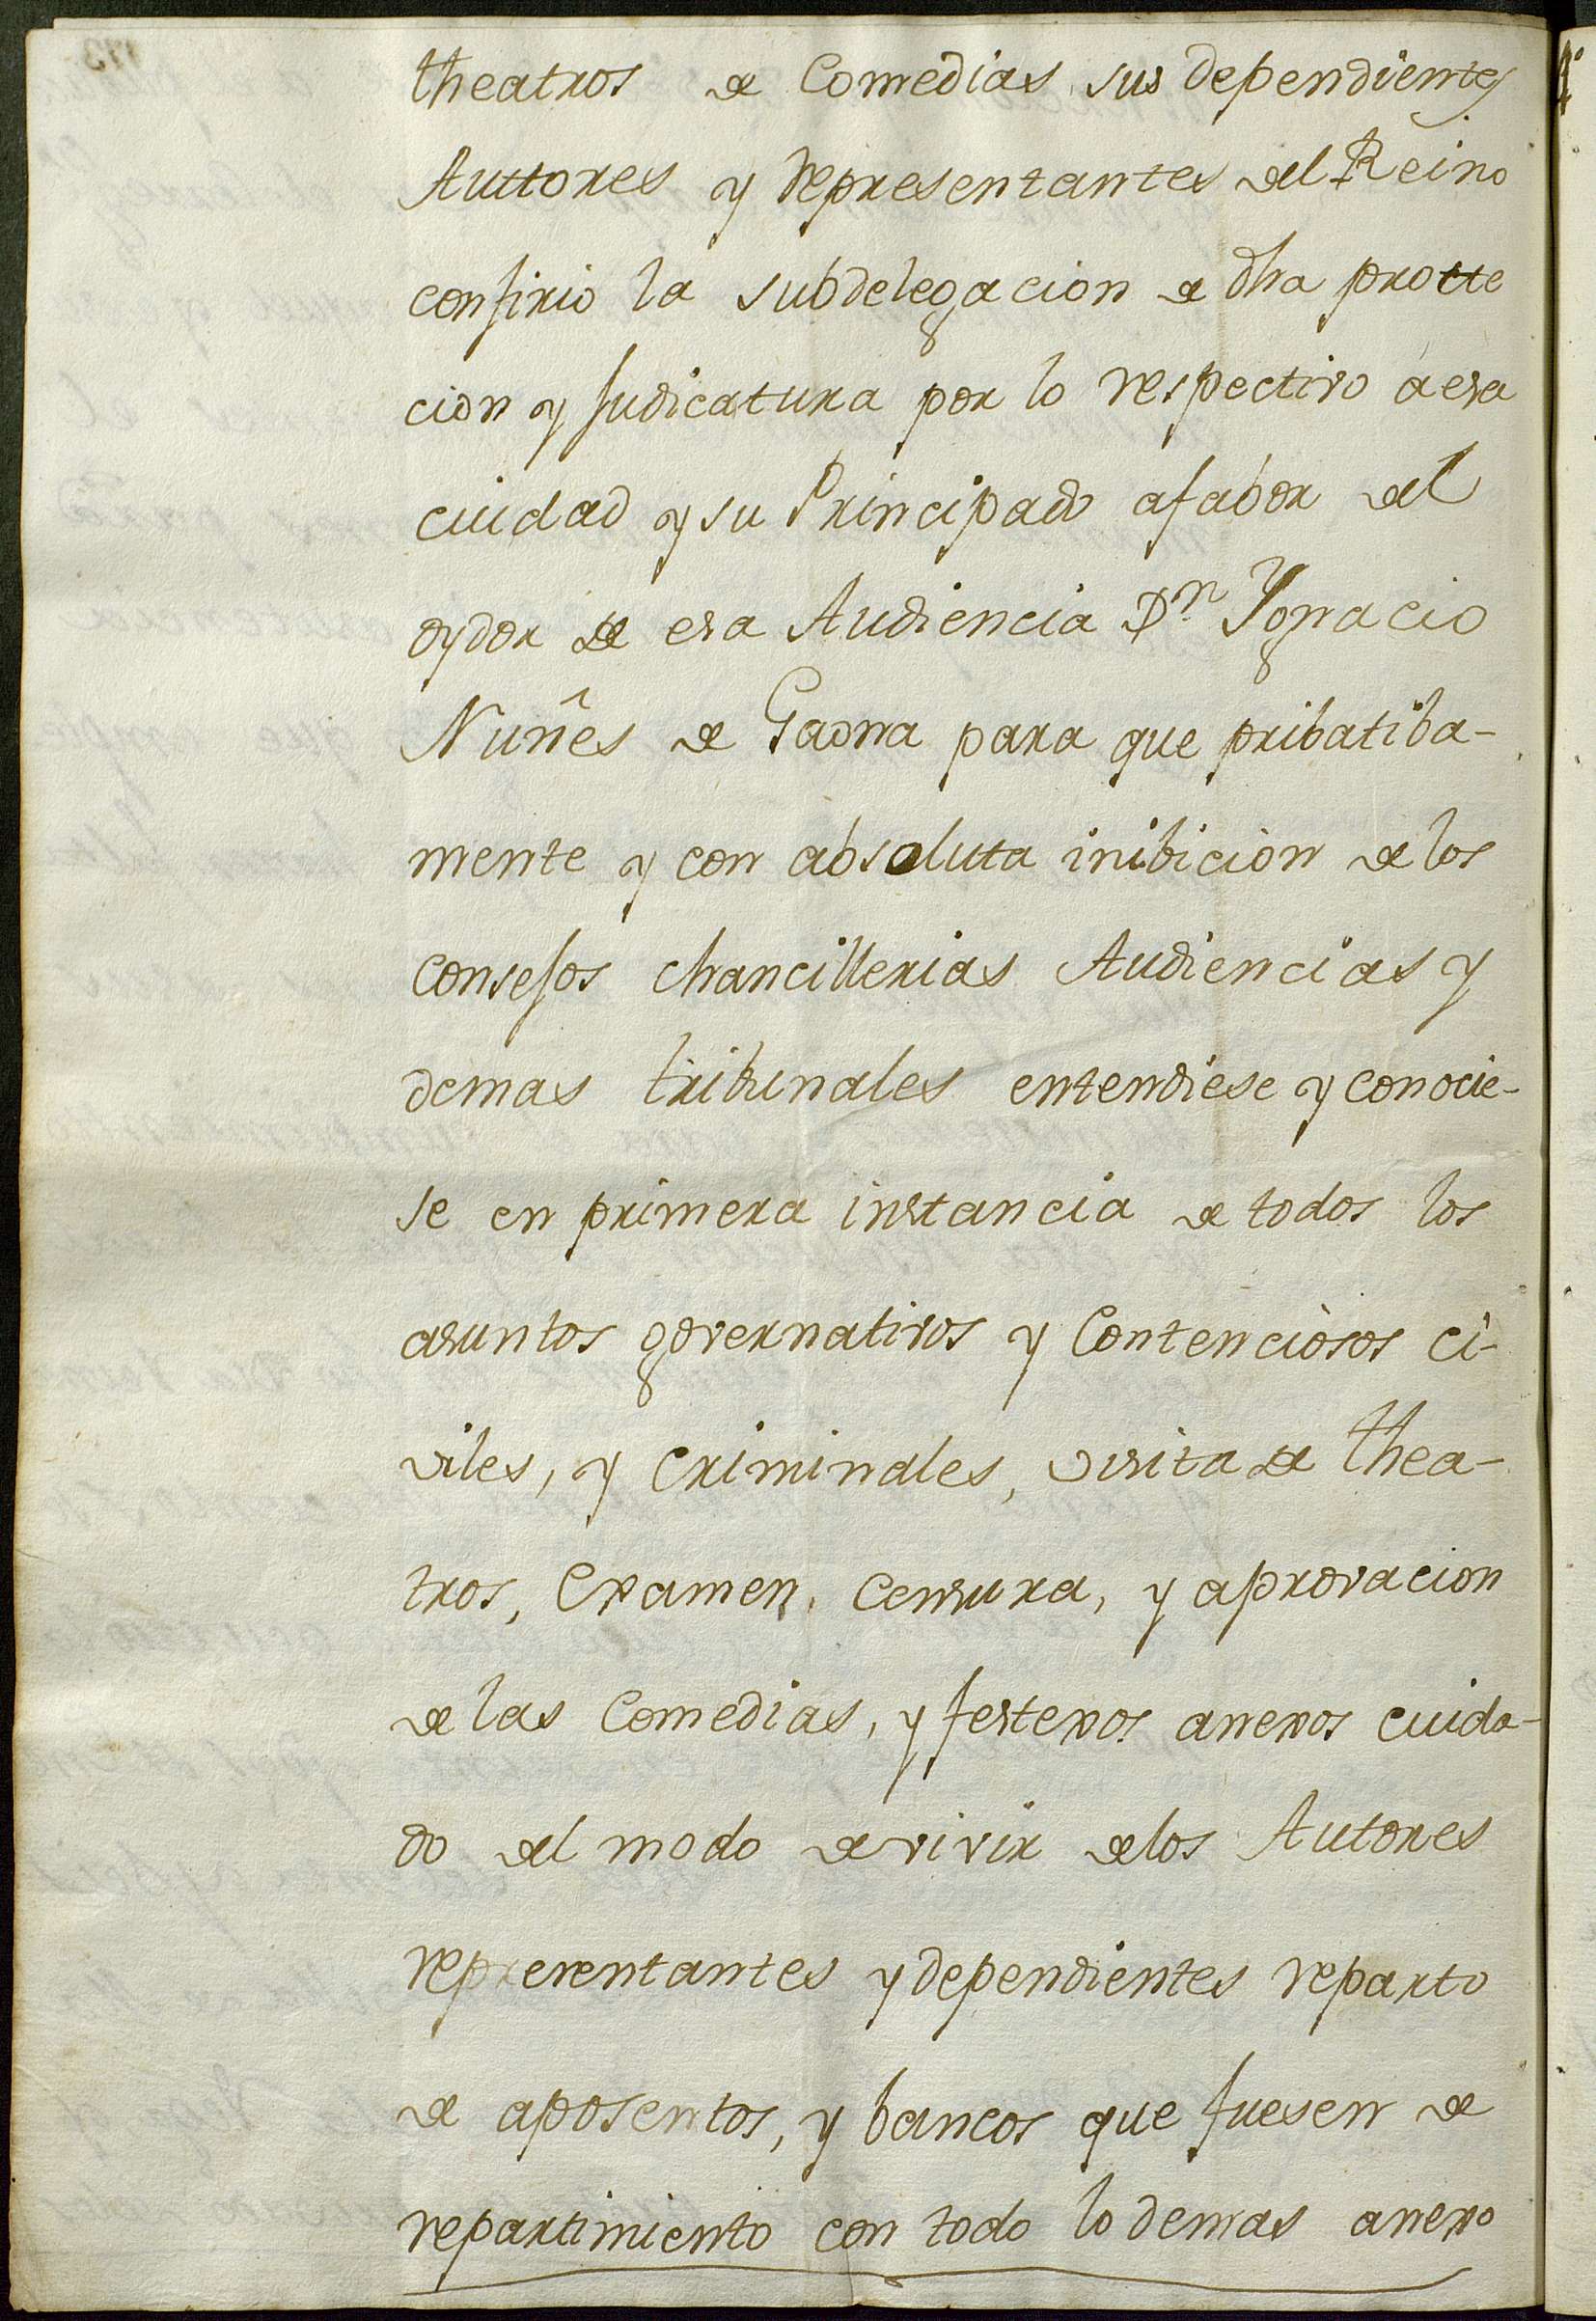 theatros de Comedias sus dependientes
Auttores y representantes del Reino
confirio la subdelegacion de dha protte
cion y Judicatura por lo respectivo a esa
ciudad y su Principado afabor del
oydor de esa Audiencia Dn. Ygnacio
Nuñes de Gaona para que pribatiba-
mente y con absoluta inibicion de los
consejos chancillerias Audiencias y
demas tribunales entendiese y conocie-
se en primera instancia de todos los
asuntos governativos y Contenciosos ci-
viles, y Criminales, visita de thea-
tros, Examen, Censura, y aprovacion
de las Comedias, y festexos anexos cuida-
do del modo de vivir delos Autores
representantes y dependientes reparto
de aposentos, y bancos que fuesen de
repartimiento con todo lo demas anexo